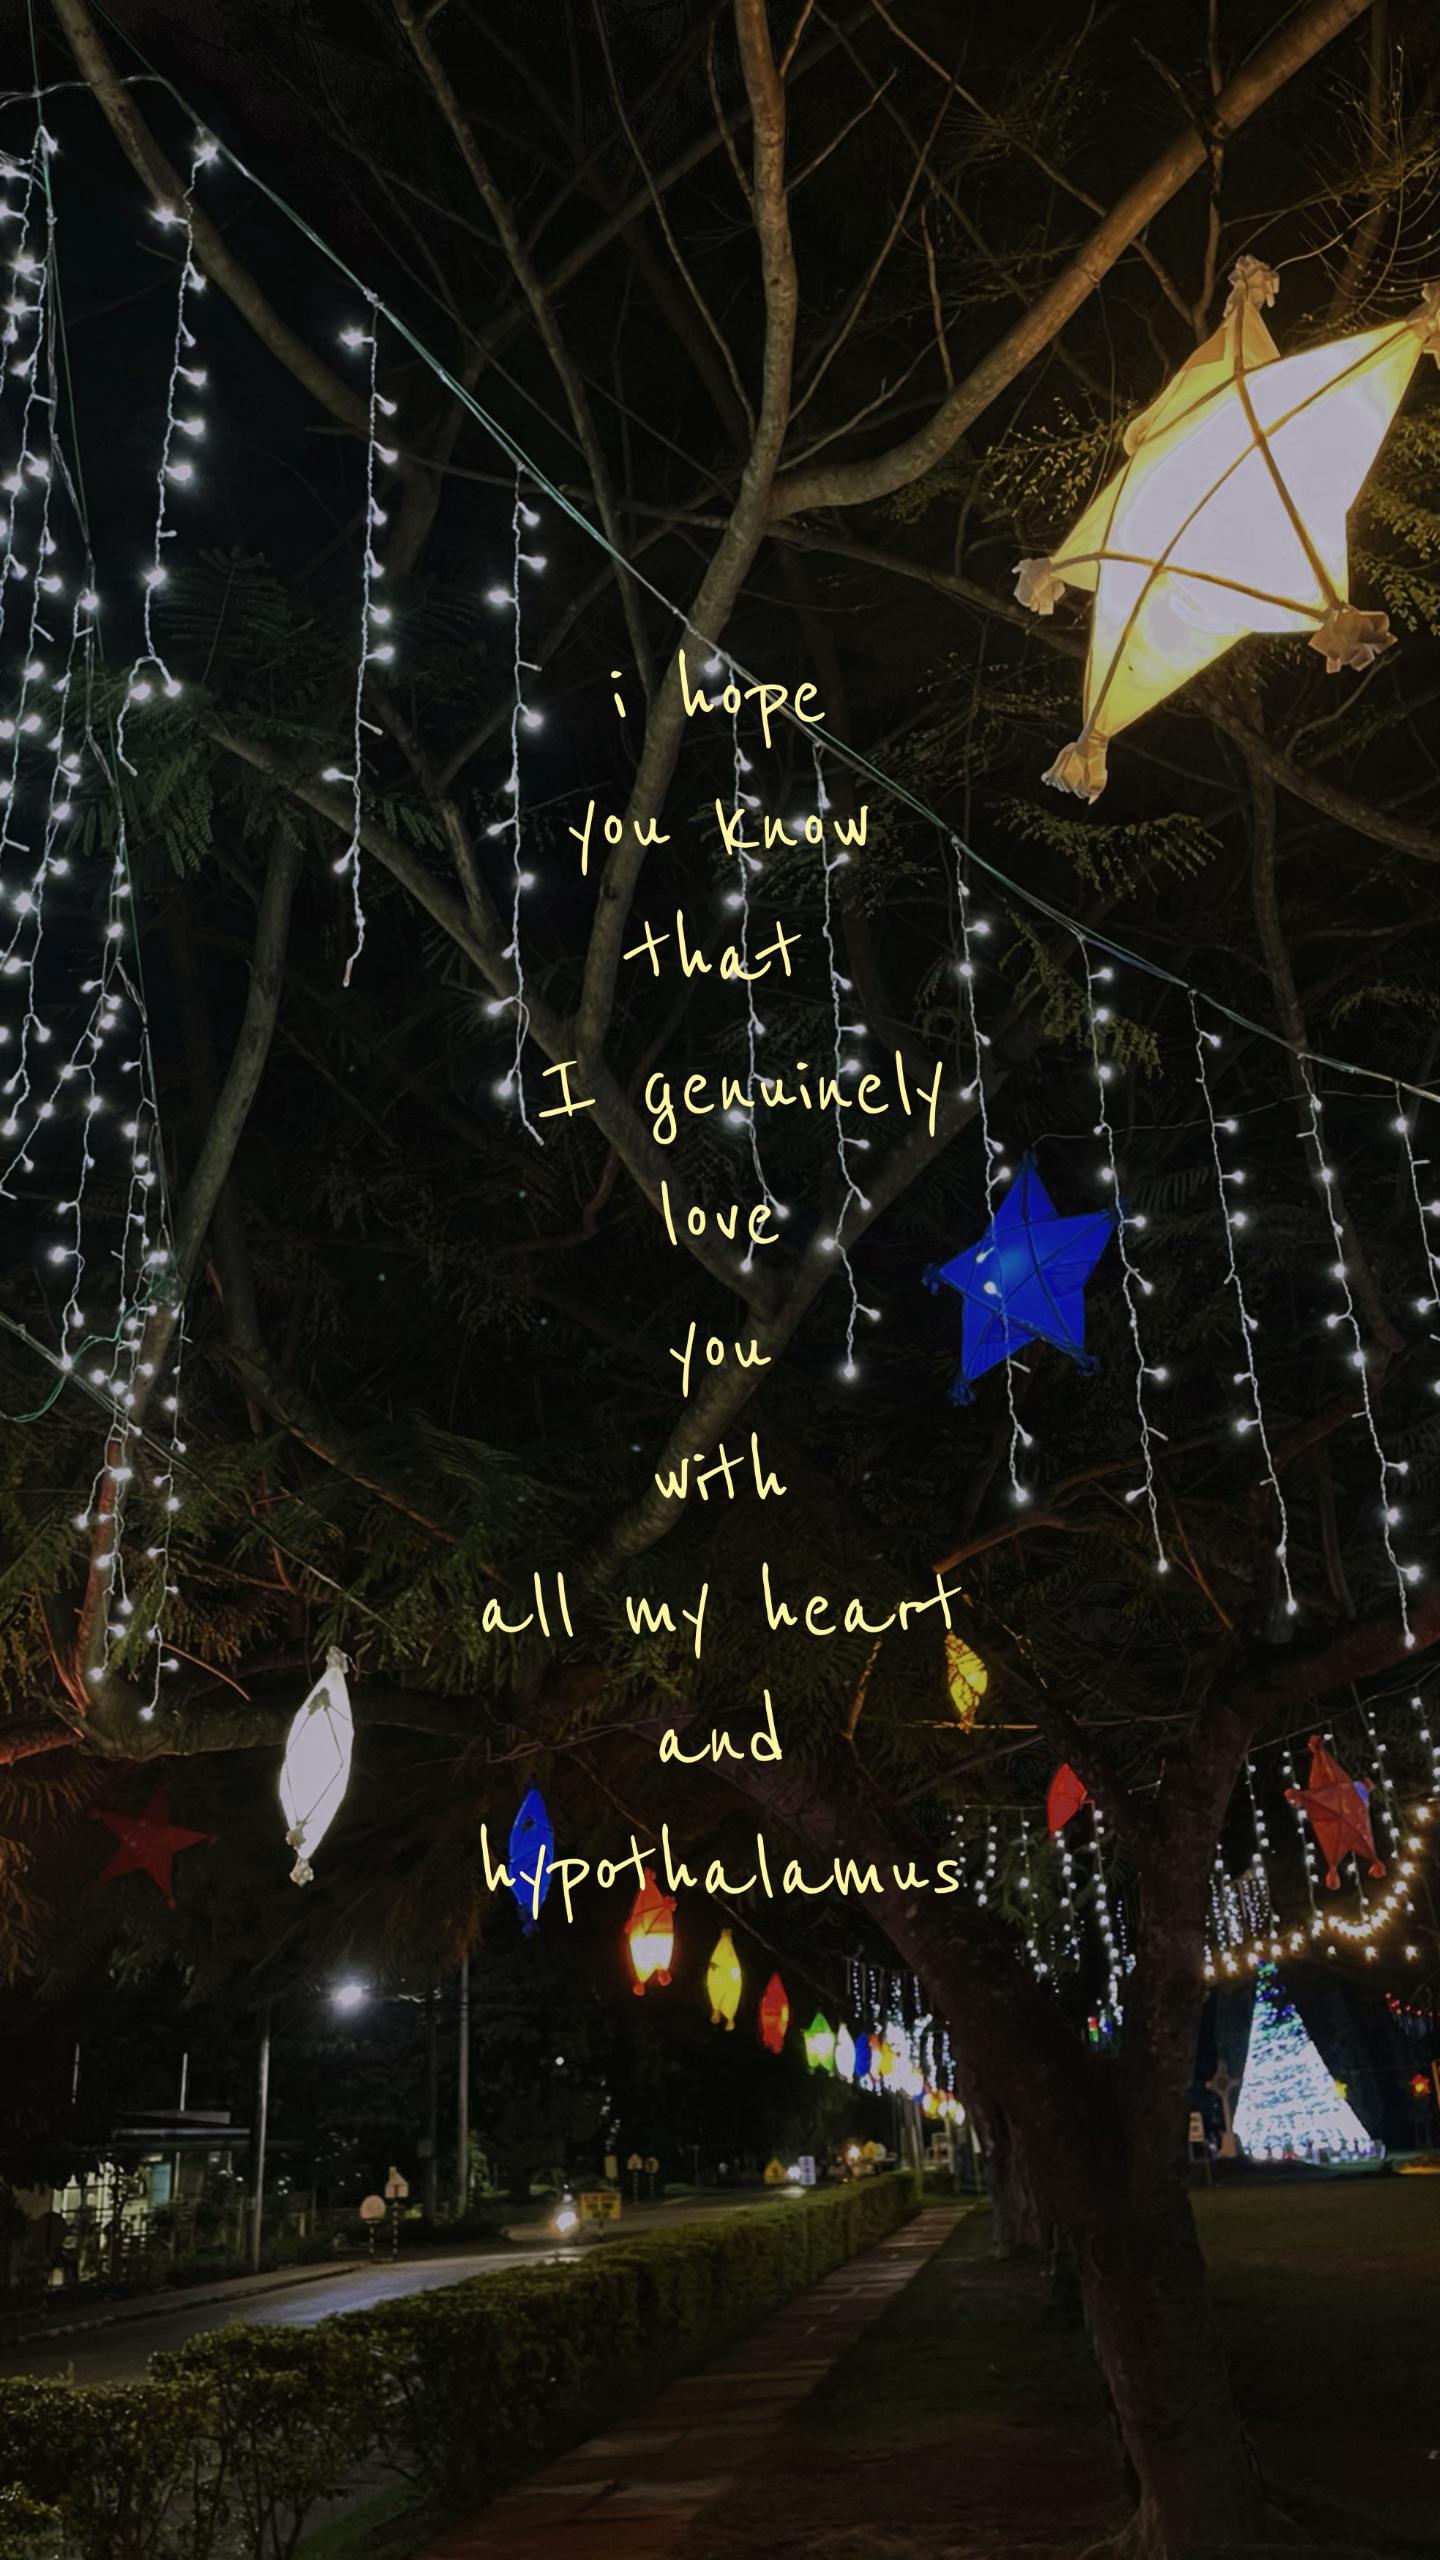 i hope
you know
that
I genuinely
love
you
with
all my heart
and
hypothalamus